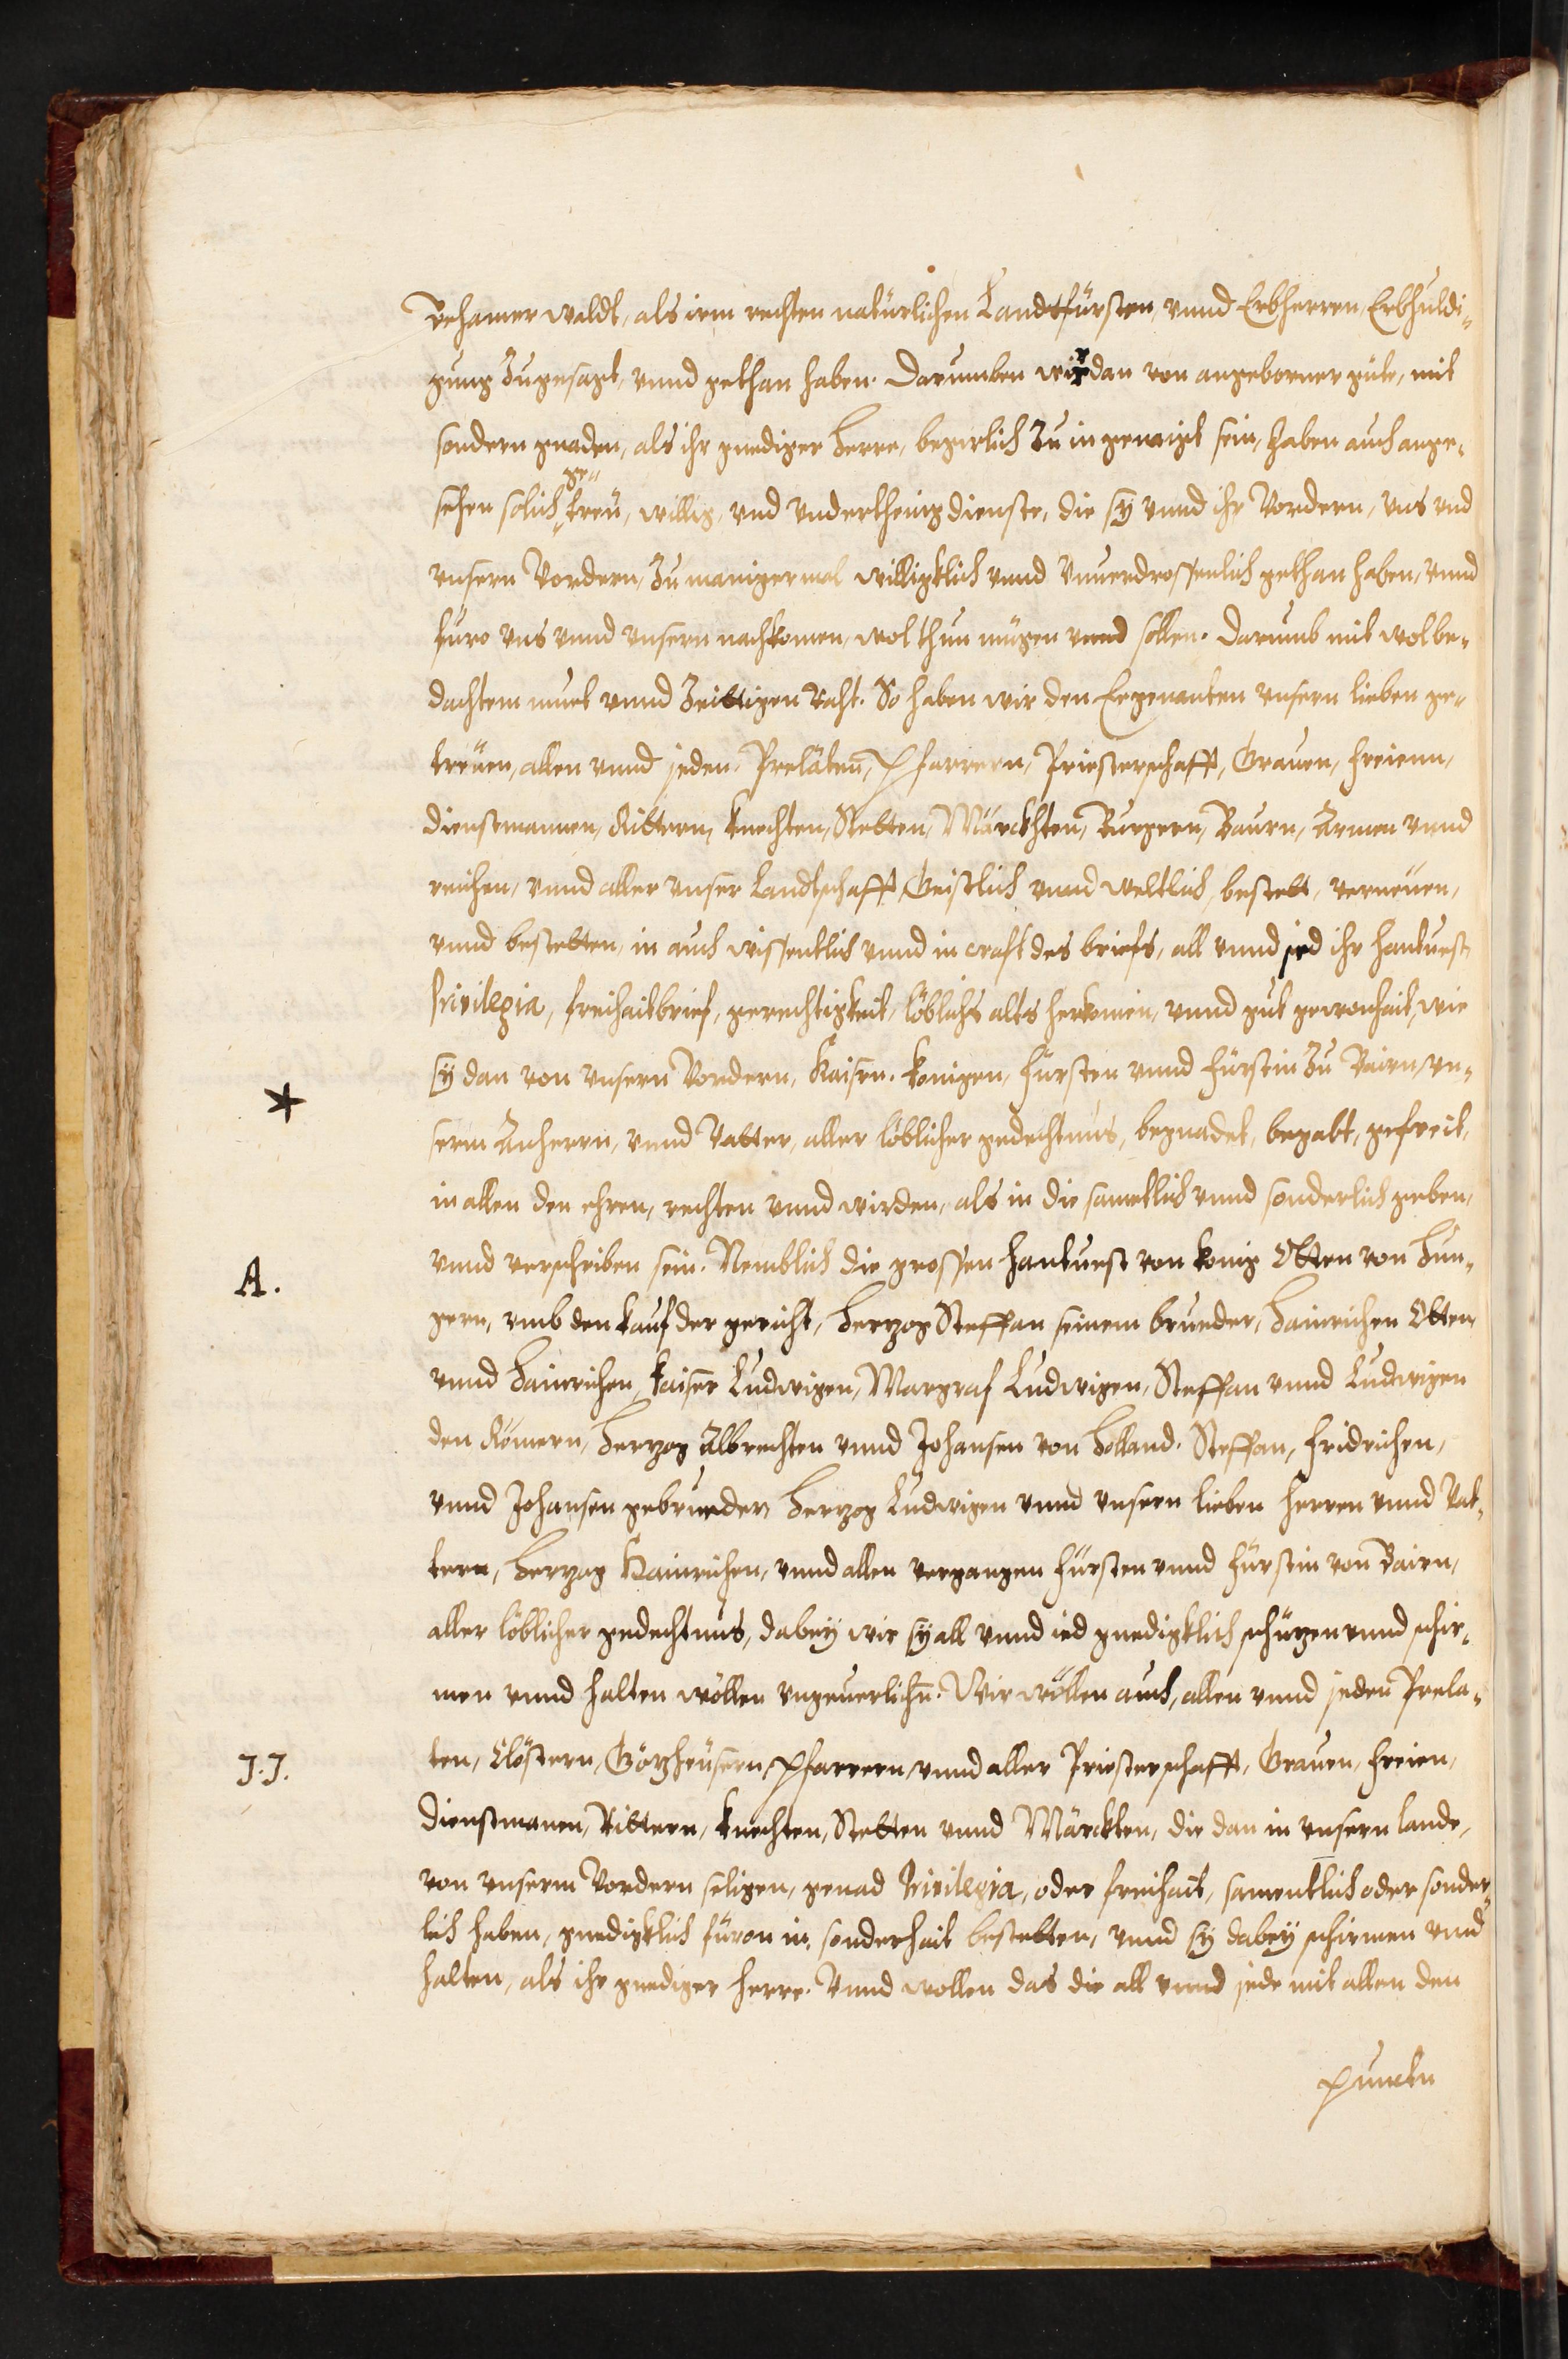 Behamer waldt, als irm rechten natürlichen Landtfürsten, vnnd Erbherren, Erbhuldi„
gung Zugesagt, vnnd gethan haben. Darumben wir dan von angeborner güte, mit
sondern gnaden, als ihr gnediger Herre, begirlich Zu in genaigt sein, haben auch ange„
sehen solich getreü, willig, vnd vnderthenig dienste, die sÿ vnnd ihr Vordern, vns vnd
vnsern Vordern, Zu maniger mal willigklich vnnd Vnuerdrossenlich gethan haben, vnnd
füro vns vnnd vnsern nachkomen, wol thun mügen vnnd sollen. Darumb mit wolbe„
dachtem muet vnnd Zeittigen Raht. So haben wir den Eegenanten vnsern lieben ge„
treüen, allen vnnd jeden, Prelätenn, Pfarrern, Priesterschafft, Grauen, freienn,
dienstmannen, Rittern, knechten, Stetten, Märckhten, Burgern, Baurn, Armen vnnd
reichen, vnnd aller vnser Landtschafft, Geistlich vnnd weltlich, bestett, verneüen,
vnnd bestetten, in auch wissentlich vnnd in craft des briefs, all vnnd jed ihr hantuest,
Privilegia, freihaitbrief, gerechtigkeit, löblichs alts herkomen, vnnd gut gewonhait, wie
sÿ dan von vnsern Vordern, Kaisern, konigen, fürsten vnnd fürstin Zu Bairn, vn„
serm Anherrn, vnnd Vatter, aller löblicher gedechtnus, begnadet, begabt, gefreit,
in allen den ehren, rechten vnnd wirden, als in die sametlich vnnd sonderlich geben,
vnnd verschriben sein. Nemblich die grossen hantuest von konig Otten von Hun„
gern, vmb den kauf der gericht, Herzog Steffan seinem brueder, Hainrichen Otten,
vnnd Hainrichen, kaiser Ludwigen, Margraf Ludwigen, Steffan vnnd Ludwigen
den Römern, Herzog Albrechten vnnd Johansen von Holland. Steffan, fridrichen,
vnnd Johansen gebrueder, Herzog Ludwigen vnnd vnsern lieben herren vnnd Vat„
tern, Herzog Hainrichen, vnnd allen vergangen fürsten vnnd fürstin von Bairn,
aller löblicher gedechtnus, dabeÿ wir sÿ all vnnd ied gnedigklich schüzen vnnd schir„
men vnnd halten wöllen vngeuerlichn. Wir wöllen auch, allen vnnd jeden Prela„
ten, Clöstern, Gözheüsern, Pfarrern, vnnd aller Priesterschafft, Grauen, freien,
Dienstmanen, Rittern, knechten, Stetten vnnd Märckten, die dan in vnsern lande,
von vnserm Vordern seligen, genad Privilegia, oder freihait, samentlich oder sonder„
lich haben, gnedigklich füron in sonderhait bestetten, vnnd sÿ dabeÿ schirmen vnd
halten, als ihr gnediger herre. Vnnd wollen das die all vnnd jede mit allen den
Puncktn
*
A.
J.J.